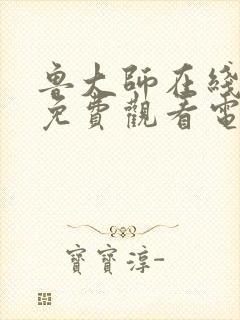 鲁大師在綫
免費觀看電
寶寶淳-